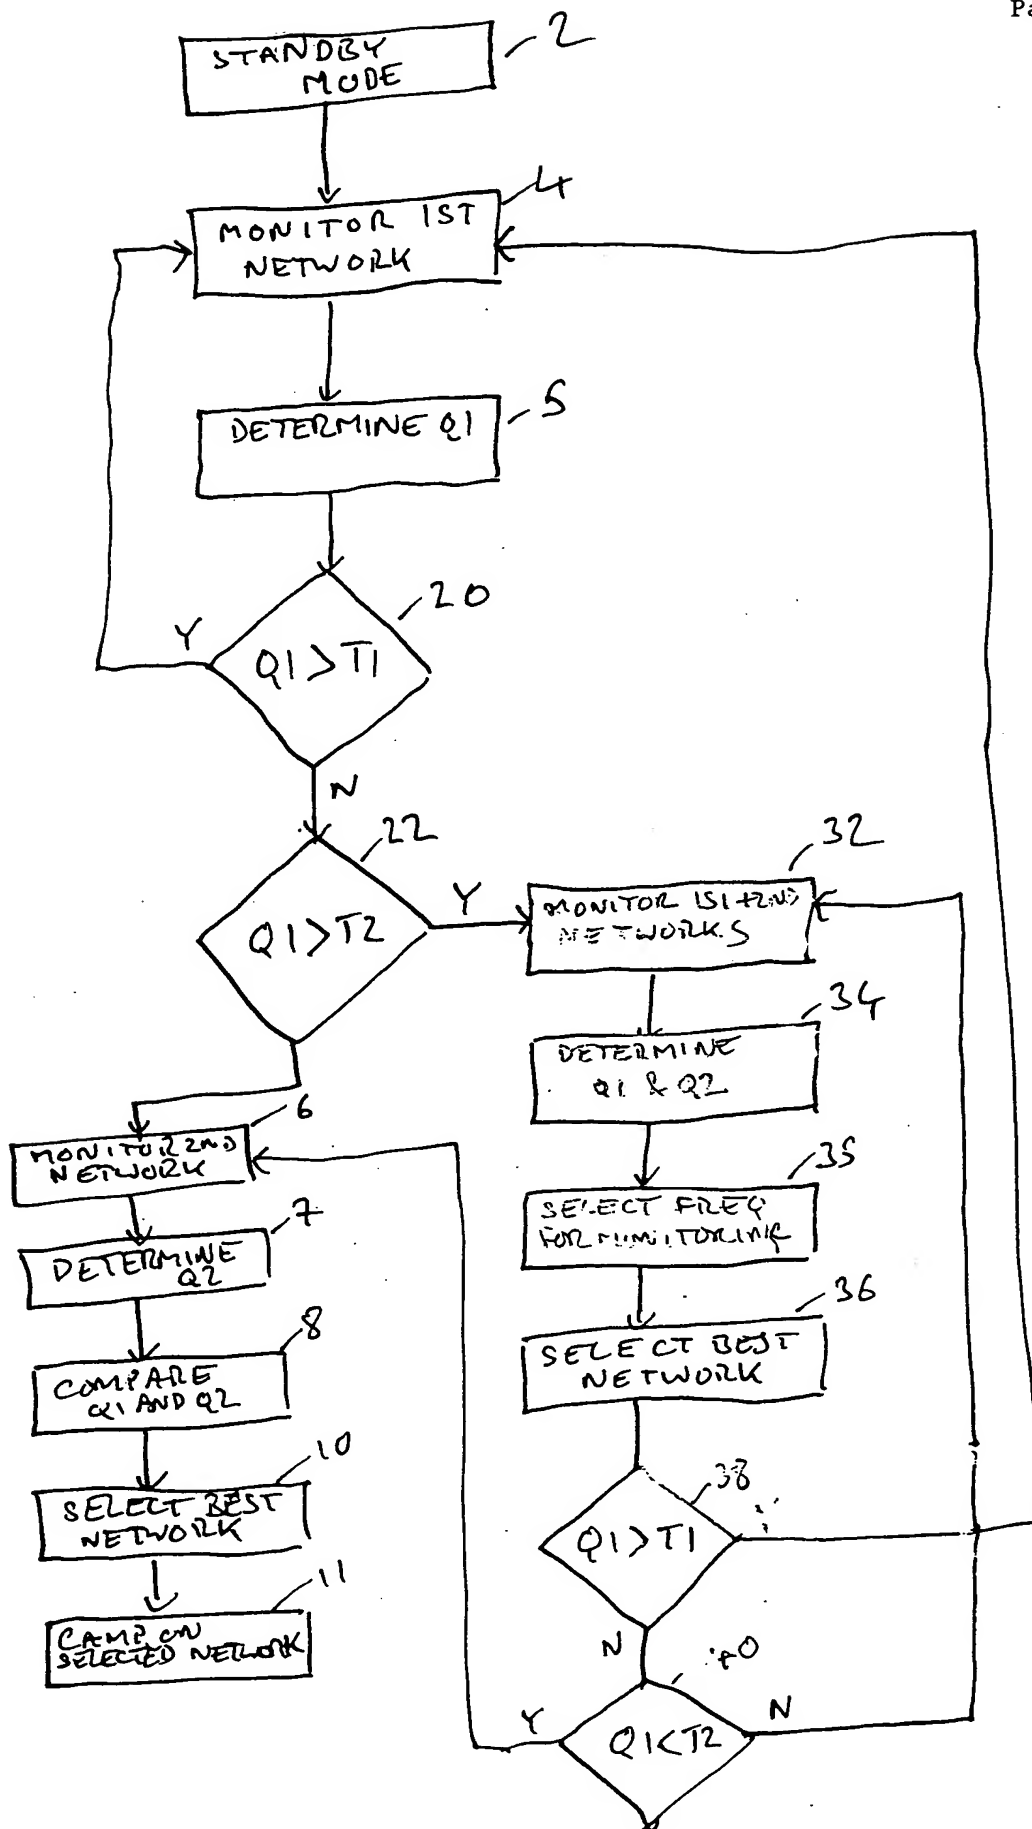 Pa
STANDBY
MODE
2
MONITOR 1ST
NETWORK
4
DETERMINE Q1
5
Q1>T1
20
Y
N
Q1>T2
22
Y
MONITOR 1ST+2ND
NETWORKS
32
DETERMINE
Q1 & Q2
34
SELECT FREQ
FOR MONITORING
35
SELECT BEST
NETWORK
36
Q1>T1
38
N
Q1<T2
Y
N
MONITOR 2ND
NETWORK
6
DETERMINE
Q2
7
COMPARE
Q1 AND Q2
8
SELECT BEST
NETWORK
10
CAMP ON
SELECTED NETWORK
11